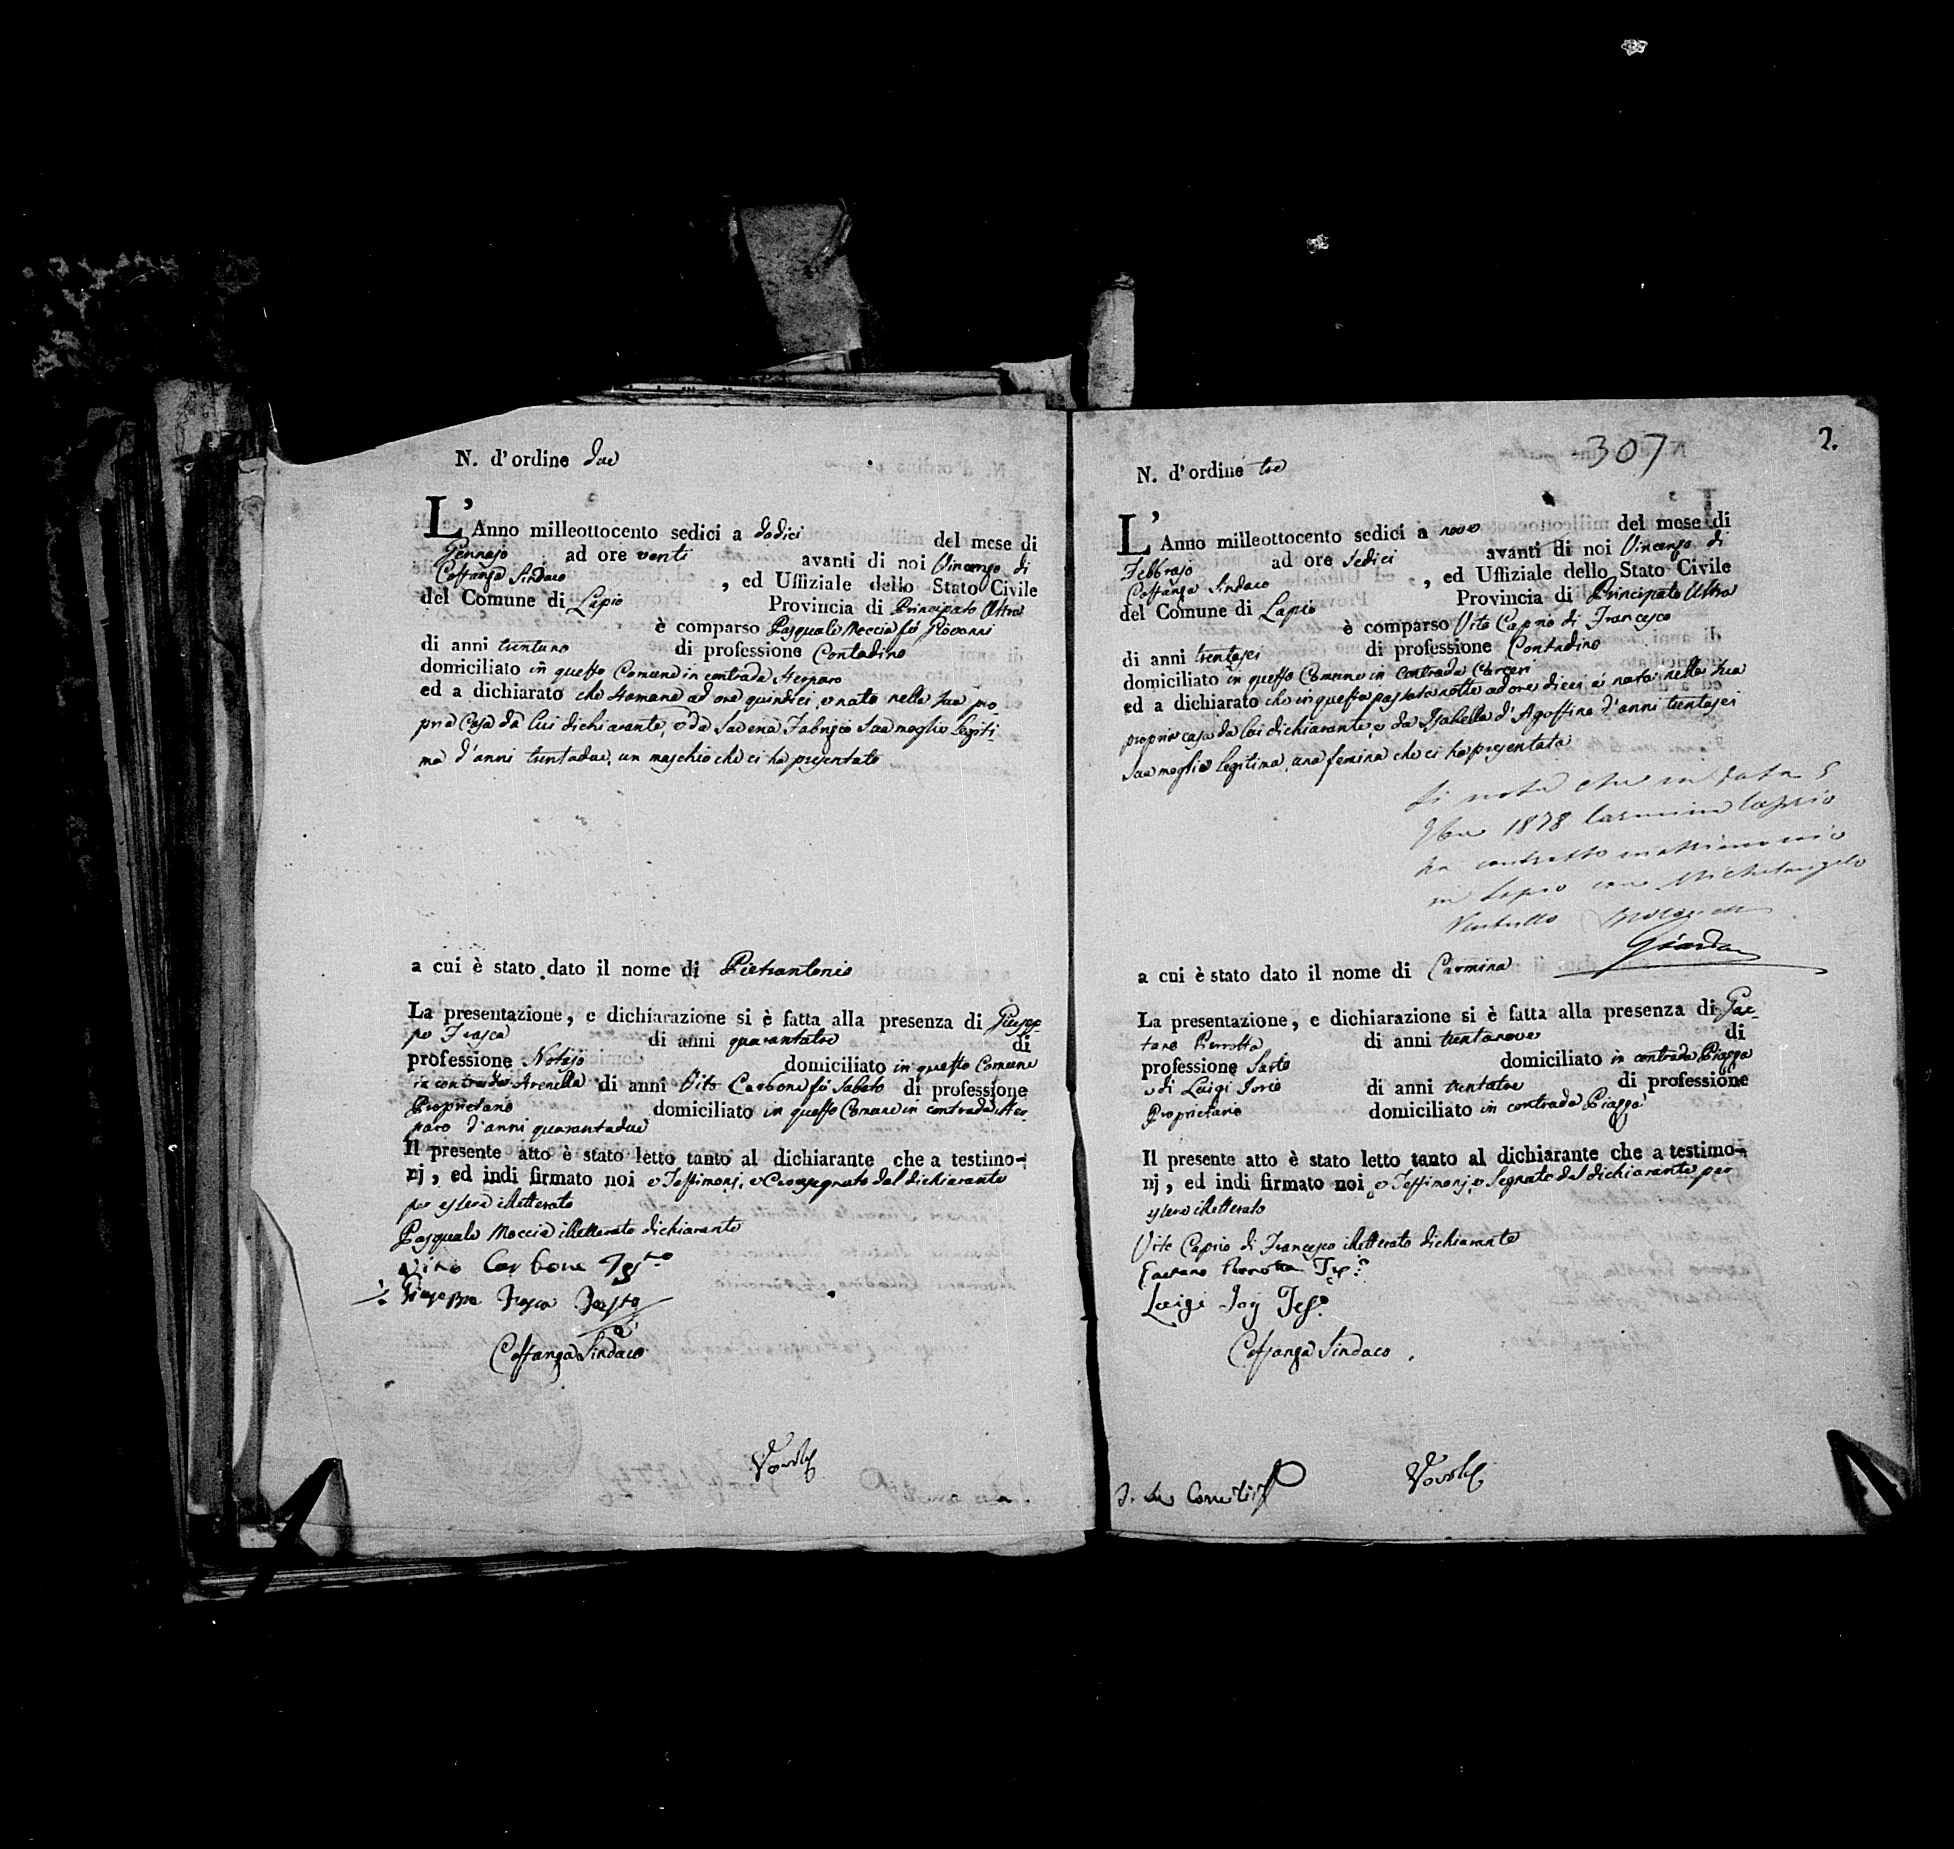 N. d'ordine due
L'Anno milleottocento sedici a dodici del mese di
Gennajo ad ore venti avanti di noi Vincenzo di
Costanza Sindaco , ed Uffiziale dello Stato Civile
del Comune di Lapio Provincia di Principato Ultra
è comparso Pasquale Moccia fù Giovanni
di anni trentuno di professione Contadino
domiciliato in questo Comune in contrada
ed a dichiarato che ad ore quindici, è nato nella sua pro-
pria Casa da lui dichiarante, e da Fabrizio sua moglie legiti-
ma d'anni trentadue, un maschio che ci ha presentato
a cui è stato dato il nome di Pietrantonio
La presentazione, e dichiarazione si è fatta alla presenza di Giusep-
pe Frasca di anni quarantatre di
professione Notajo domiciliato in questo Comune
in contrada Arenella di anni Vito Carbone fù Sabato di professione
Proprietario domiciliato in questo Comune in contrada
d'anni quarantadue
Il presente atto è stato letto tanto al dichiarante che a testimo-
nj, ed indi firmato noi e Testimonj, e Crocesegnato dal dichiarante
per essere illetterato
Pasquale Moccia illetterato dichiarante
Vito Carbone
Giuseppe Frasca
Costanza Sindaco
307
2.
N. d'ordine tre
L'Anno milleottocento sedici a nove del mese di
Febbrajo ad ore sedici avanti di noi Vincenzo di
Costanza Sindaco , ed Uffiziale dello Stato Civile
del Comune di Lapio Provincia di Principato Ultra
è comparso Vito Caprio di Francesco
di anni trentasei di professione Contadino
domiciliato in questo Comune in Contrada Carceri
ed a dichiarato che in questa passata notte ad ore dieci è nata nella sua
propria casa da lui dichiarante, e da Isabella d'Agostino d'anni trentasei
sua moglie legitima, una femina che ci ha presentata
Si nota che in data 5
1878 Carmina Caprio
ha contratto matrimonio
in Lapio con Michelangelo
a cui è stato dato il nome di Carmina
La presentazione, e dichiarazione si è fatta alla presenza di Gae-
tano Perrotta di anni trentanove di
professione Sarto domiciliato in contrada Piazza
e di Luigi Iorio di anni trentatre di professione
Proprietario domiciliato in contrada Piazza
Il presente atto è stato letto tanto al dichiarante che a testimo-
nj, ed indi firmato noi, e Testimonj, e Segnato dal dichiarante per
essere illetterato
Vito Caprio di Francesco illetterato dichiarante
Gaetano Perrotta
Luigi
Costanza Sindaco